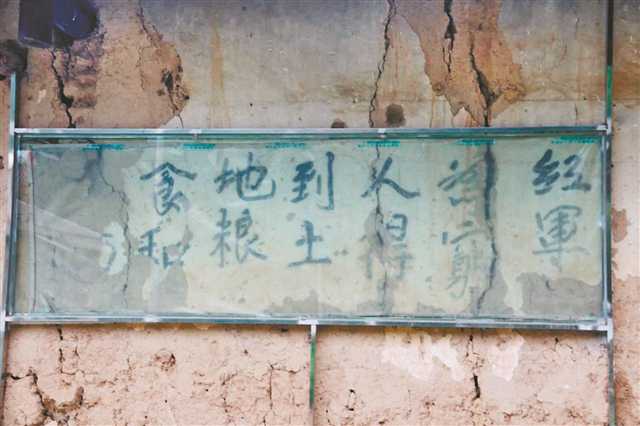 紅軍
為窮
人得
到土
地粮
食和